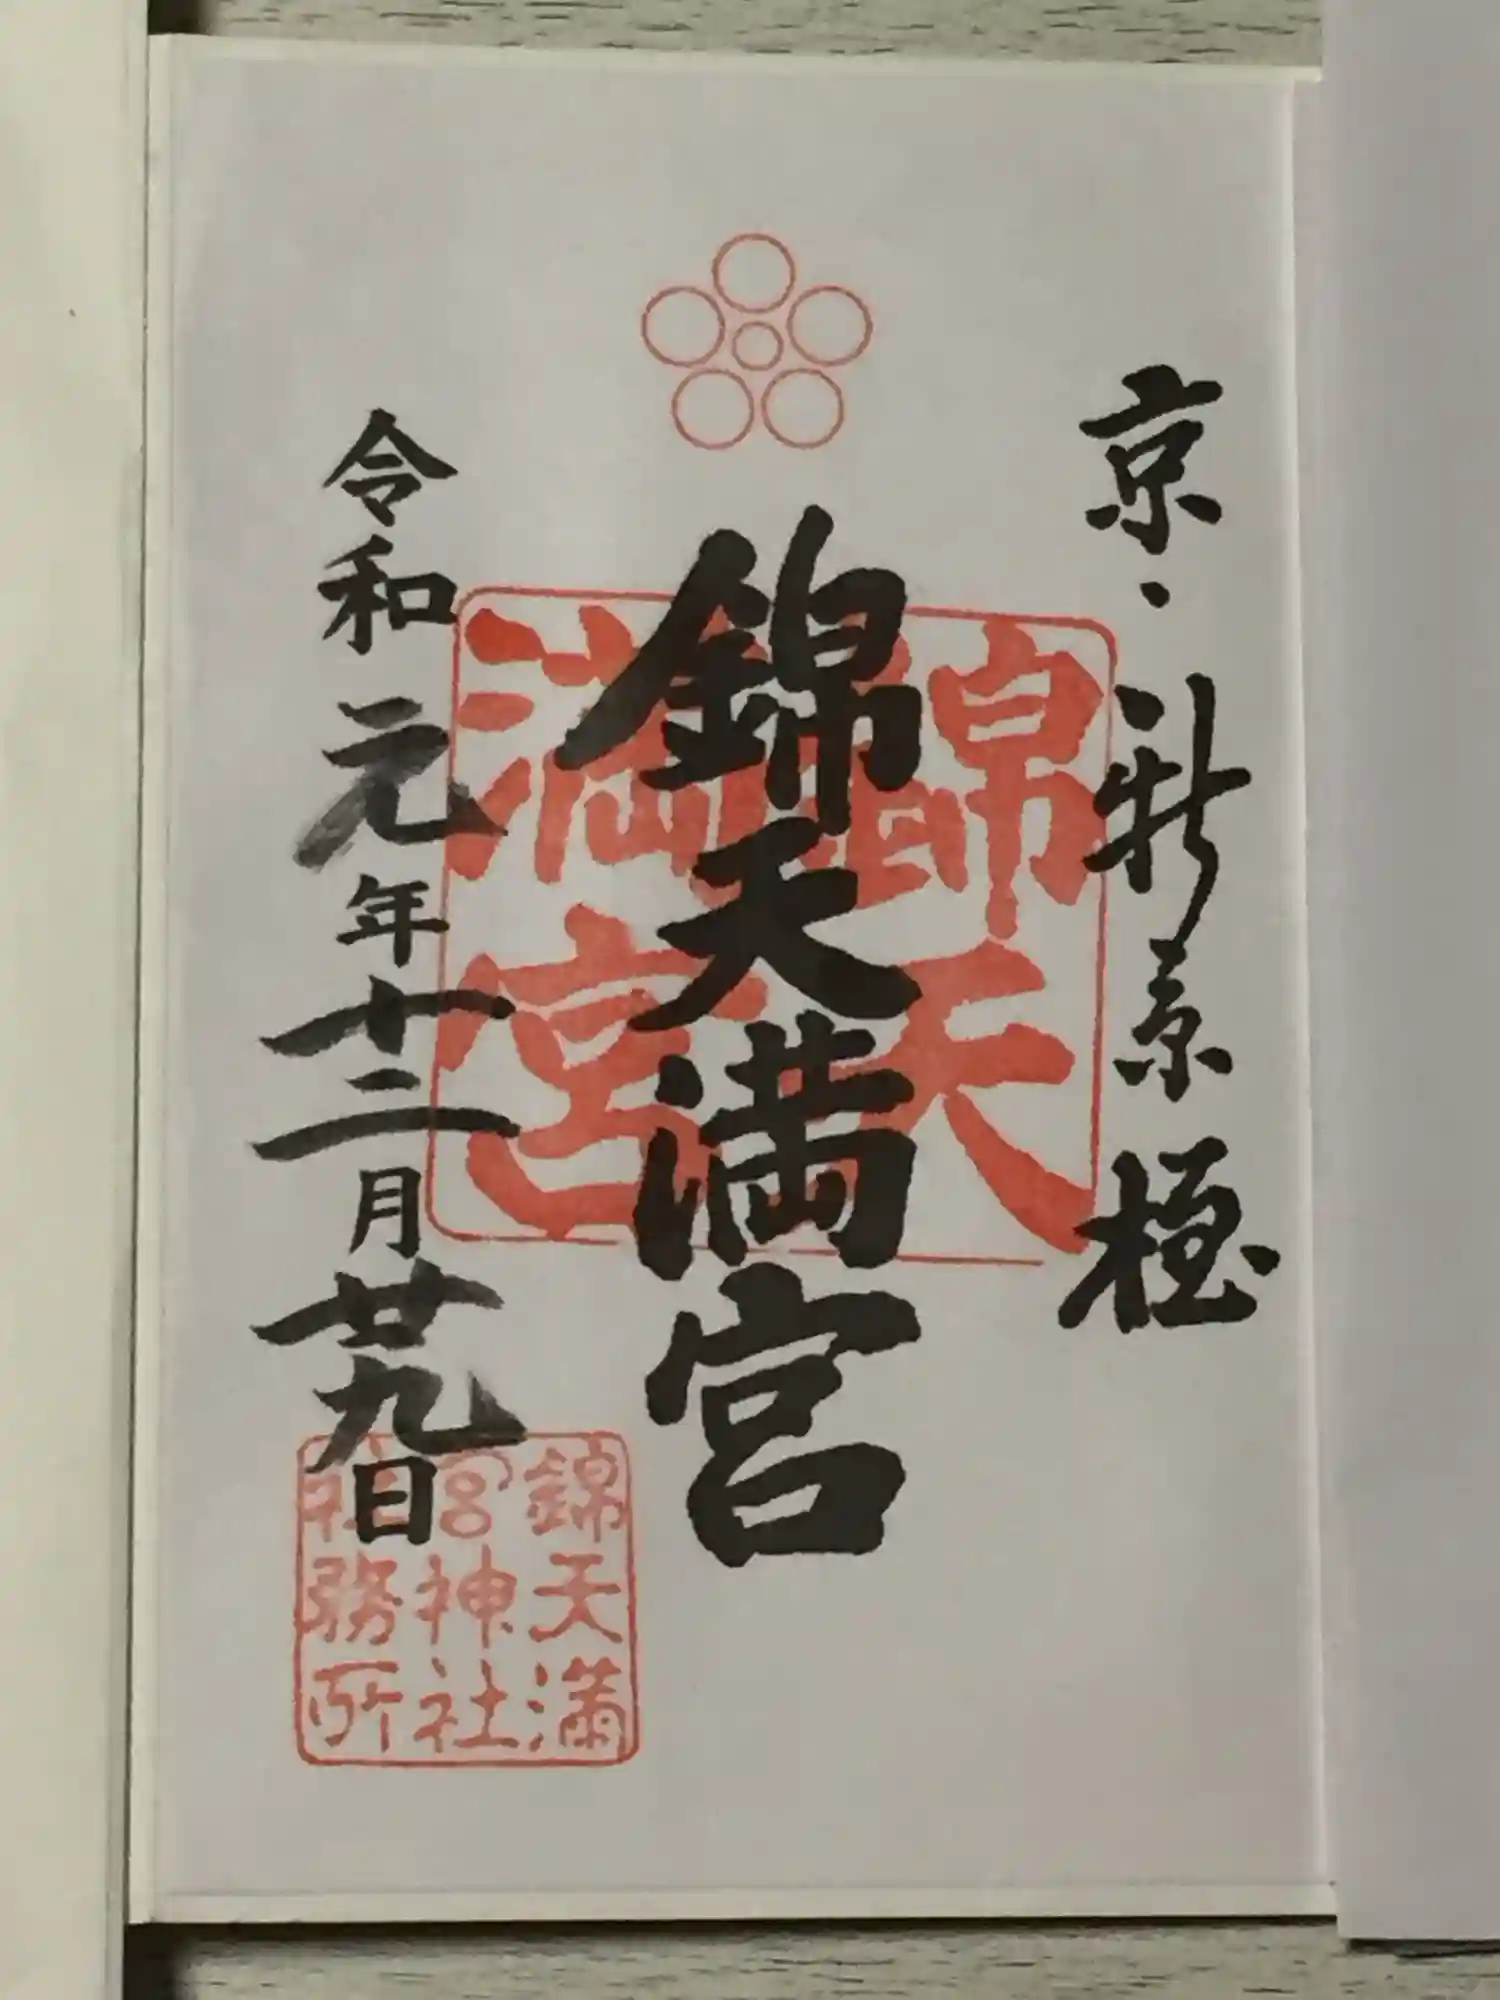 京・新京極
錦天満宮
令和元年十二月廿九日
錦天
満宮
錦天満
宮神社
社務所